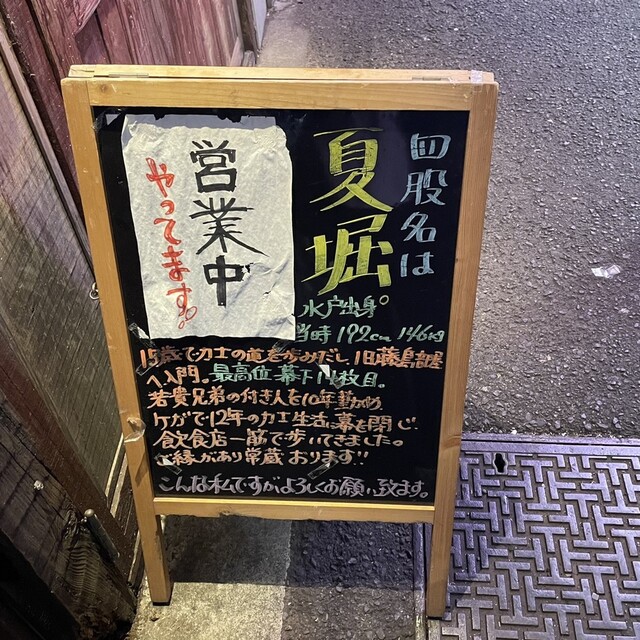 四股名は
夏堀
営業中
やってます。
水戸出身。
当時 192cm 146kg
15歳で力士の道を歩みだし、旧藤島部屋
へ入門。最高位幕下14枚目。
若貴兄弟の付き人を10年勤め
ケガで12年の力士生活に幕を閉じ
飲食店一筋で歩いてきました。
ご縁があり常蔵おります!!
こんな私ですがよろしくお願い致ます。